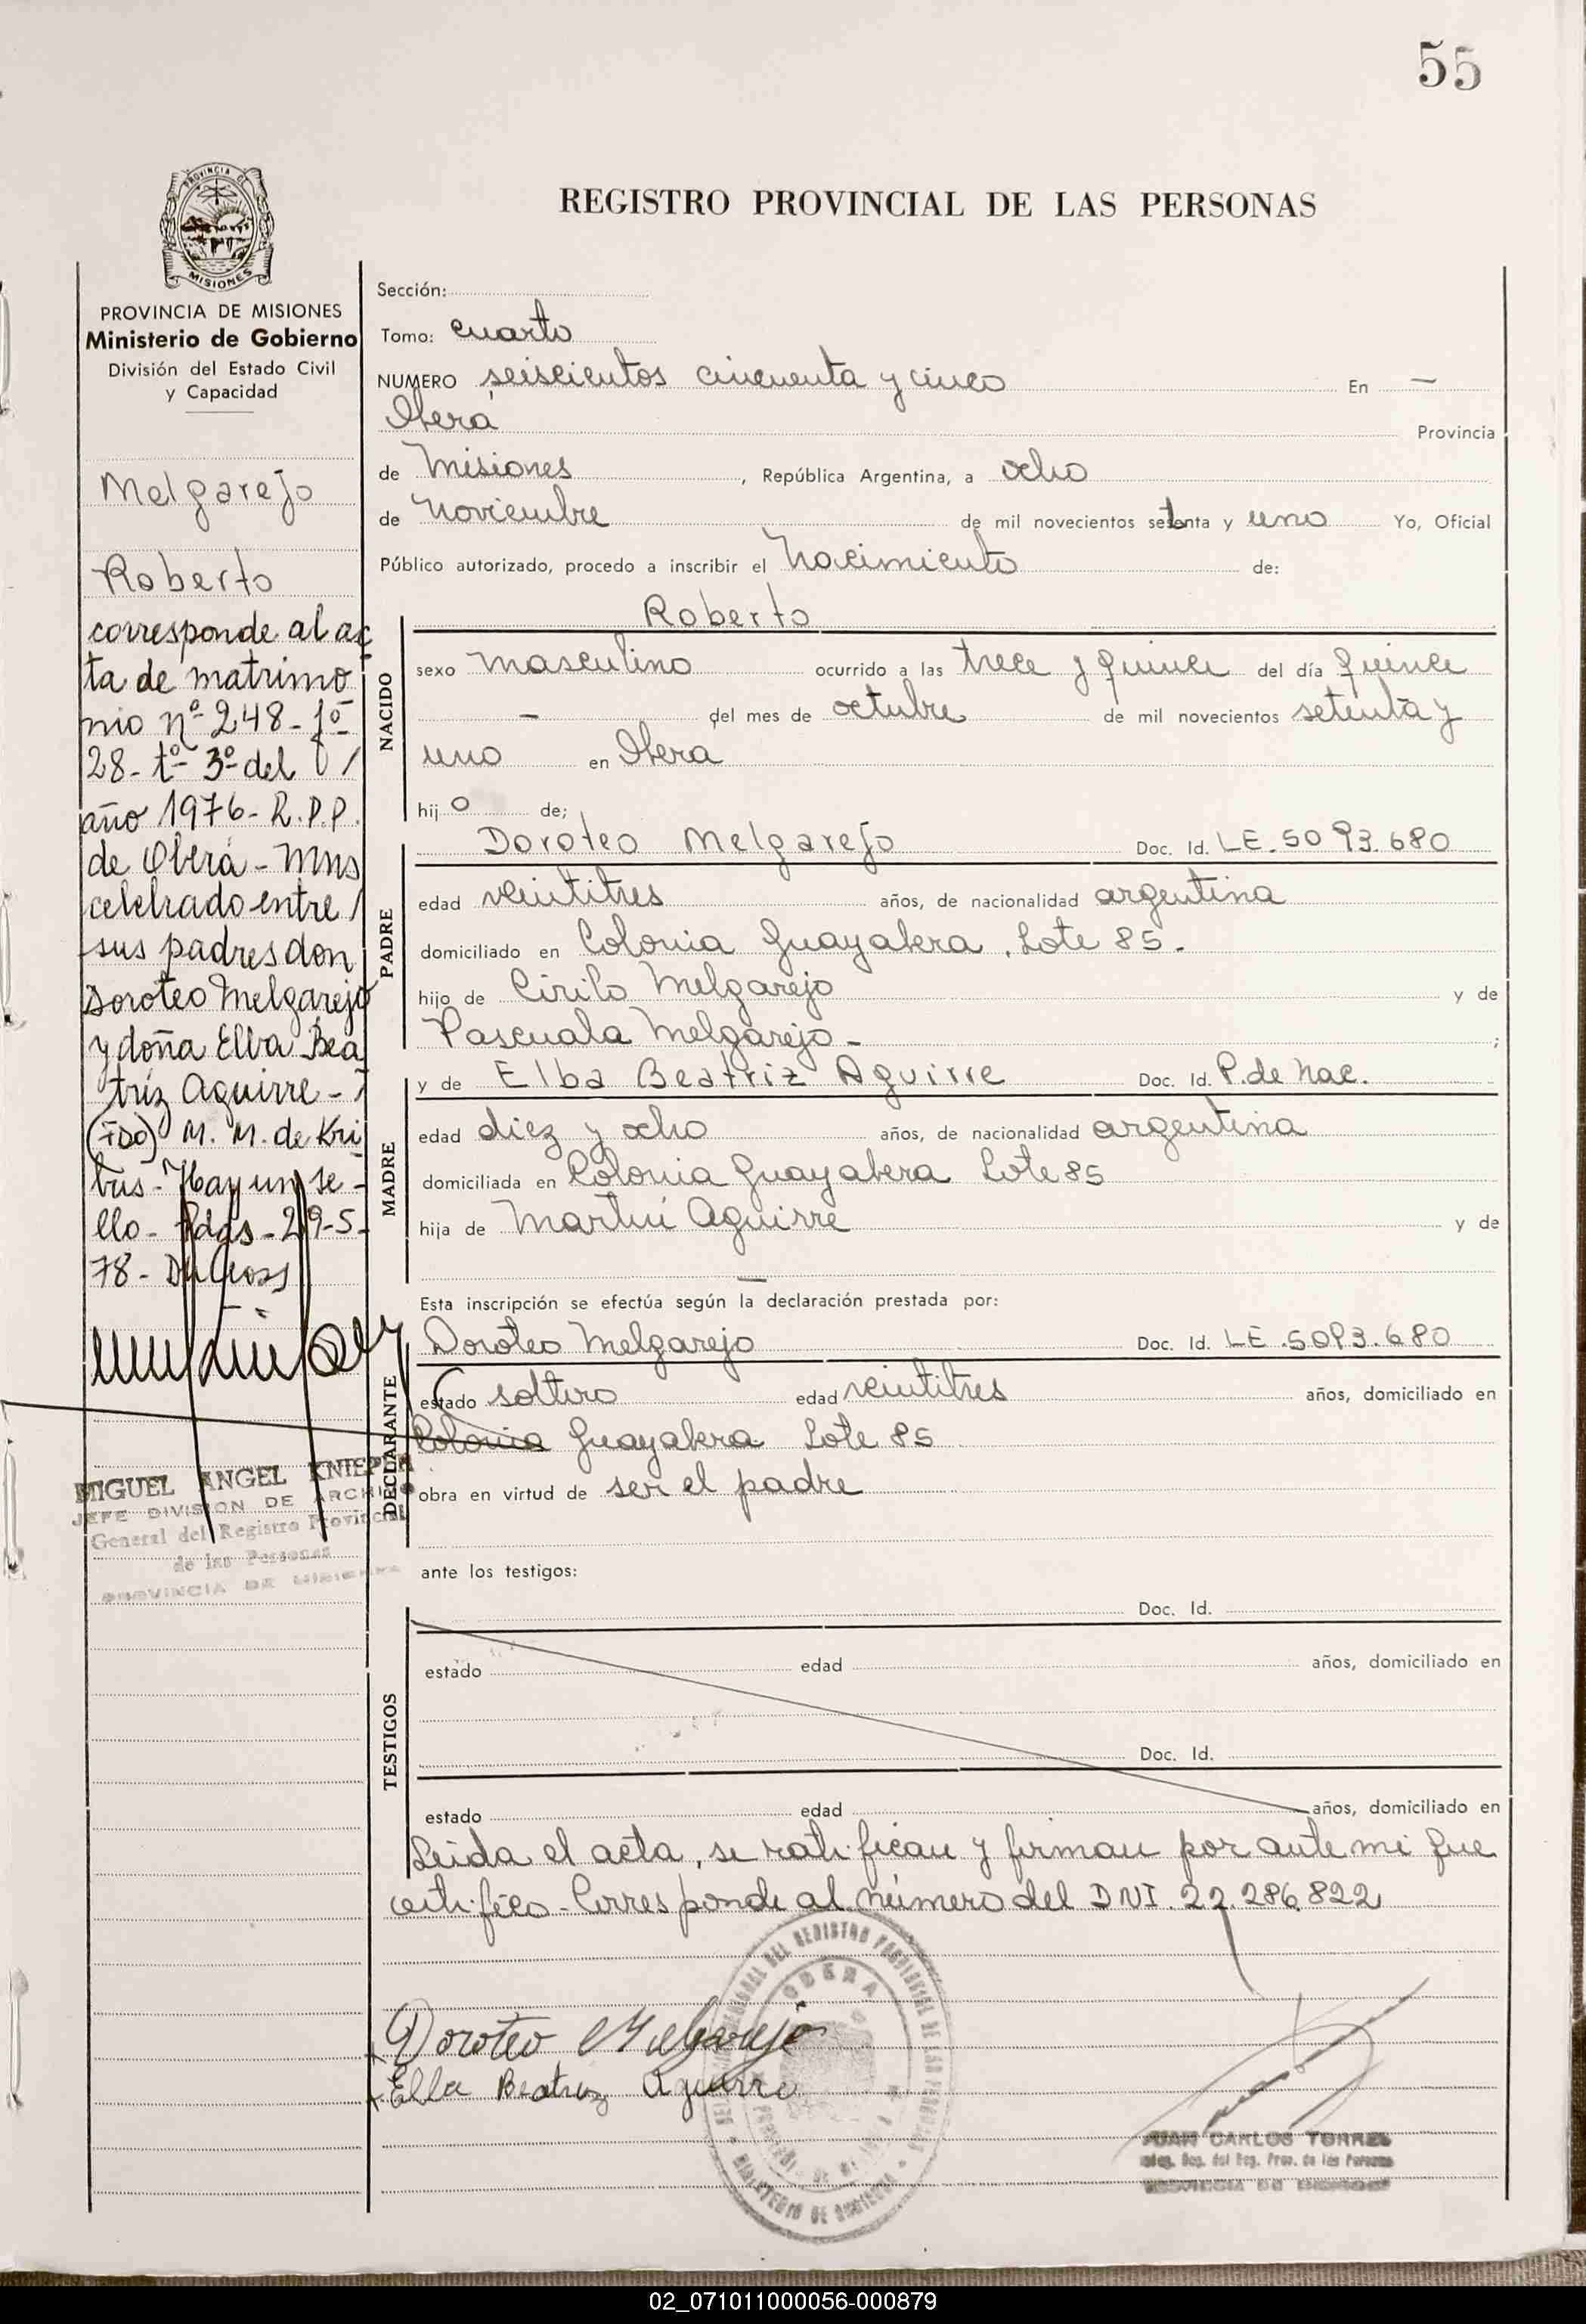 55
PROVINCIA DE
MISIONES
REGISTRO PROVINCIAL DE LAS PERSONAS
PROVINCIA DE MISIONES
Ministerio de Gobierno
División del Estado Civil
y Capacidad
Melgarejo
Roberto
corresponde al ac
ta de matrimo
nio nº 248 - fº
28 - tº 3º del /
año 1976 - R.P.P.
de Oberá - Mns
celebrado entre /
sus padres don
Doroteo Melgarejo
y doña Elba Bea
triz Aguirre -
(FDO) M. M. de Kri
bus - Hay un se-
llo - Pdas - 29-5-
78 -
MIGUEL ANGEL
JEFE DIVISION DE ARCHIVO
General del Registro Provincial
de las Personas
PROVINCIA DE MISIONES
Sección:
Tomo: cuarto
NUMERO seiscientos cincuenta y cinco En —
Oberá Provincia
de Misiones , República Argentina, a ocho
de Noviembre de mil novecientos setenta y uno Yo, Oficial
Público autorizado, procedo a inscribir el Nacimiento de:
NACIDO
Roberto
sexo masculino ocurrido a las trece y quince del día quince
— del mes de octubre de mil novecientos setenta y
uno en Obera
hijo de;
PADRE
Doroteo Melgarejo Doc. Id. LE-5093.680
edad veintitres años, de nacionalidad argentina
domiciliado en Colonia Guayabera, Lote 85-
hijo de Cirilo Melgarejo y de
Pascuala Melgarejo- ;
MADRE
y de Elba Beatriz Aguirre Doc. Id. P. de Nac.
edad diez y ocho años, de nacionalidad argentina
domiciliada en Colonia Guayabera Lote 85
hija de Martin Aguirre y de
—
Esta inscripción se efectúa según la declaración prestada por:
DECLARANTE
Doroteo Melgarejo Doc. Id. LE.5093.680
estado soltero edad veintitres años, domiciliado en
Colonia Guayabera Lote 85
obra en virtud de ser el padre
ante los testigos:
TESTIGOS
Doc. Id.
estado edad años, domiciliado en
Doc. Id.
estado edad años, domiciliado en
Leida el acta, se ratifican y firman por ante mi que
certifico - Corresponde al número del DNI. 22.286.822
OBERA
MINISTERIO DE GOBIERNO
Doroteo Melgarejo
Elba Beatriz Aguirre
JUAN CARLOS TORRES
del Reg. Prov. de las Personas
PROVINCIA DE MISIONES
02_071011000056-000879